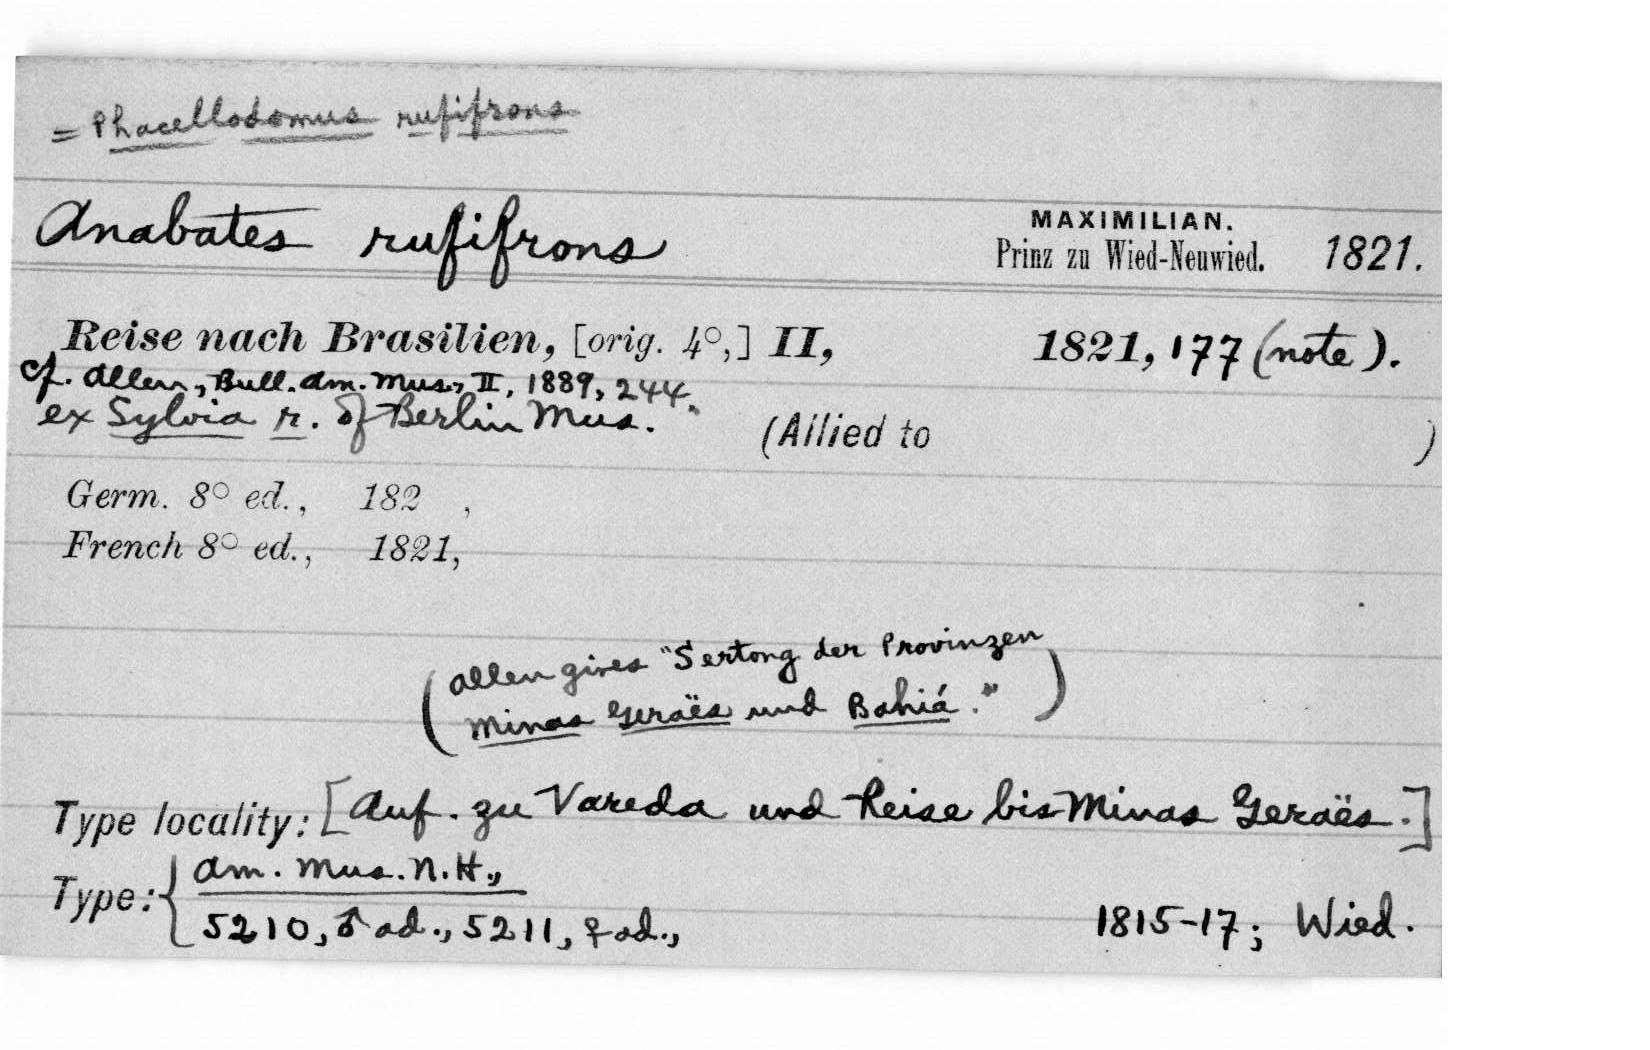 = Phacellodomus rufifrons
Anabates rufifrons MAXIMILIAN.
Prinz zu Wied-Neuwied. 1821.
Reise nach Brasilien, [orig. 4°,] II, 1821, 177 (note).
cf. Allen, Bull. Am. Mus., II, 1889, 244.
ex Sylvia r. of Berlin Mus. (Allied to )
Germ. 8° ed., 182 ,
French 8° ed., 1821,
(Allen gives "Sertong der Provinzen
Minas Geraës und Bahiá.")
Type locality: [Auf. zu Vareda und Reise bis Minas Geraës.]
Type: { Am. Mus. N.H.,
5210, ♂ ad., 5211, ♀ ad., 1815-17; Wied.